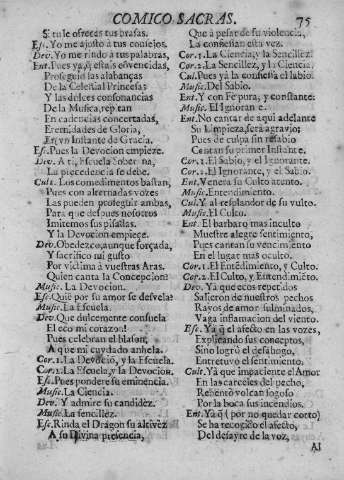 COMICO SACRAS. 75
Si tu le ofreces tus brasas.
Esc. Yo me ajusto à tus consejos.
Dev. Yo me rindo à tus palabras,
Ent. Pues ya, q̃ estais convenidas,
Proseguid las alabanças
De la Celestial Princesa;
Y las dulces consonancias
De la Musica, repitan
En cadencias concertadas,
Eternidades de Gloria,
En vn Instante de Gracia.
Esc. Pues la Devocion empieze.
Dev. A ti, Escuela Soberana,
La precedencia se debe.
Cult. Los comedimentos bastan,
Pues con alternadas vozes
Las pueden proseguir ambas,
Para que despues nosotros
Imitemos sus pisadas.
Y la Devocion empieze.
Dev. Obedezco, aunque forçada,
Y sacrifico mi gusto
Por victima à vuestras Aras.
Quien canta la Concepcion?
Music. La Devocion.
Esc. Quiẽ por su amor se desvela?
Music. La Escuela.
Dev. Que dulcemente consuela
El eco mi corazon!
Pues celebran el blason,
A que mi cuydado anhela.
Cor. 1. La Devociõ, y la Escuela.
Cor. 2. La Escuela, y la Devocion.
Esc. Pues pondere su eminencia.
Music. La Ciencia.
Dev. Y admire su candidèz.
Music. La sencillèz.
Esc. Rinda el Dragon su altivèz
A su Divina presencia,
Que à pesar de su violencia,
La confiessan esta vez.
Cor. 1. La Ciencia, y la Sencillez.
Cor. 2. La Sencillez, y la Ciencia.
Cul. Pues yà la confessa el labio.
Music. Del Sabio.
Ent. Y con Fè pura, y constante:
Music. El Ignorante.
Ent. No cantar de aqui adelante
Su Limpieza, serà agravio;
Pues de culpa sin resabio
Cantan su primer Instante.
Cor. 1. El Sabio, y el Ignorante.
Cor. 2. El Ignorante, y el Sabio.
Ent. Venera su Culto atento.
Music. Entendimiento.
Cul. Y al resplandor de su vulto.
Music. El Culto.
Ent. El barbaro mas inculto
Muestre alegre sentimiento,
Pues cantan su vencimiento
En el lugar mas oculto.
Cor. 1. El Entẽdimiento, y Culto.
Cor. 2. El Culto, y Entendimiẽto.
Dev. Yà que ecos repetidos
Salieron de nuestros pechos
Rayos de amor fulminados,
Vaga inflamacion del viento.
Esc. Yà q̃ el afecto en las vozes,
Explicando sus conceptos,
Sino logrò el desahogo,
Entretuvo el sentimiento.
Cult. Yà que impaciente el Amor
En las carceles del pecho,
Rebentò volcan fogoso
Por la boca sus incendios.
Ent. Ya q̃ (por no quedar corto)
Se ha recogido el afecto,
Del desayre de la voz,
Al